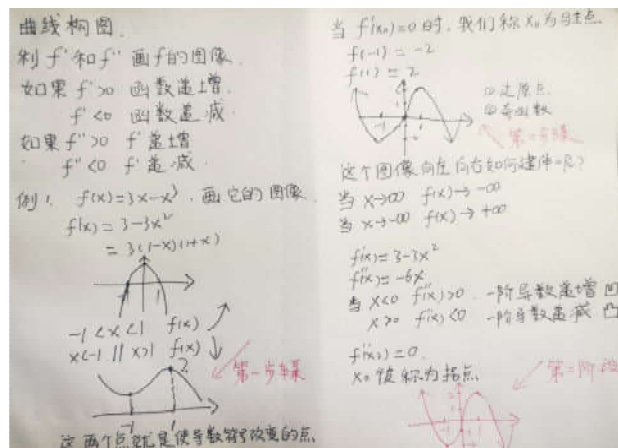 曲线构图.
利 f' 和 f'' 画 f 的图像.
如果 f'>0 函数递增.
f'<0 函数递减.
如果 f''>0 f' 递增
f''<0 f' 递减.
例1. f(x)=3x-x³, 画它的图像.
f'(x)=3-3x²
=3(1-x)(1+x)
-1<x<1 f(x) ↗
x<-1 || x>1 f(x) ↓
第一步骤
2
-1 1
这两个点就是使导数符号改变的点.
当 f'(x₀)=0 时, 我们称 x₀ 为驻点.
f(-1) = -2
f(1) = 2
① 过原点
② 奇函数
这个图像向左向右如何延伸呢?
当 x→∞ f(x)→ -∞
当 x→-∞ f(x)→ +∞
f'(x)=3-3x²
f''(x)=-6x
当 x<0 f''(x)>0. 一阶导数递增 凹
x>0 f''(x)<0 一阶导数递减 凸
f''(x₀)=0.
x₀ 被称为拐点.